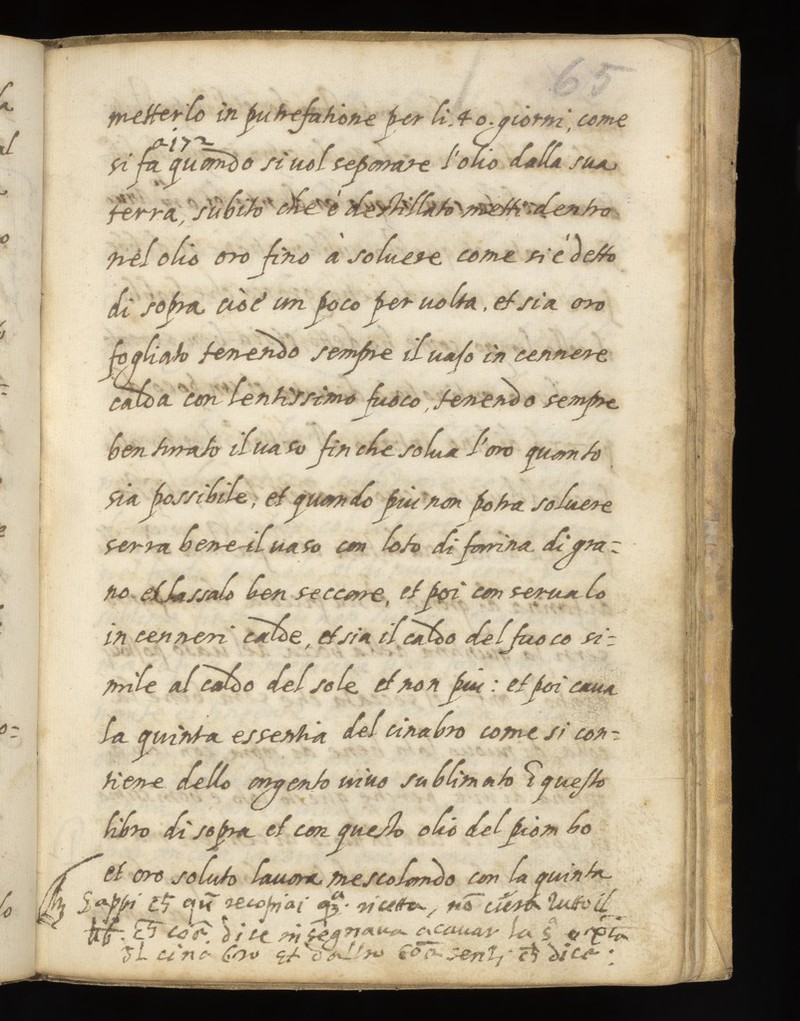 65
metterlo in putrefatione per li. 40. giorni, come
a 172
si fa quando si vol separare l'olio dalla sua
terra, subito che è destillato metti dentro
nel olio oro fino à soluere come si è detto
di sopra cioè un poco per uolta, et sia oro
fogliato tenendo sempre il uaso in cennere
calda con lentissimo fuoco, tenendo sempre
ben turato il uaso fin che solua l'oro quanto
sia possibile, et quando piu non potra soluere
serra bene il uaso con loto di farina di gra=
no et lassalo ben seccare, et poi conserualo
in cenneri calde, et sia il caldo del fuoco si=
mile al caldo del sole et non piu: et poi caua
la quinta essentia del cinabro come si con=
tiene dello argento uiuo sublimato questo
libro di sopra et con questo olio del piombo
et oro soluto lauora mescolando con la quinta
Sappi recopiai ricetta, tutto il
dice insegnaua a cauar la
cinabro et dice: